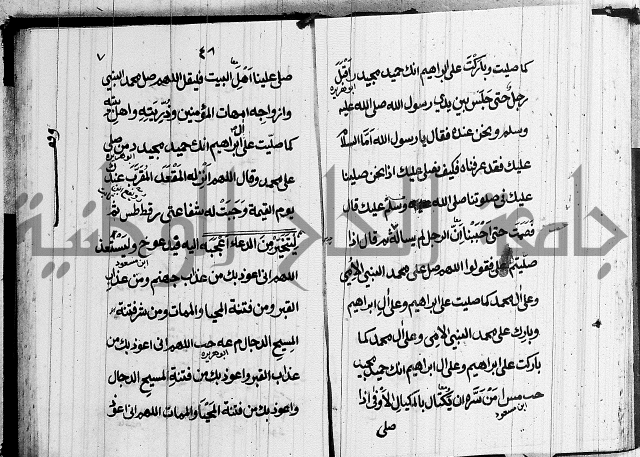 كما صليت وباركت على ابراهيم انك حميد مجيد اقبل
ابو هريرة
رجل حتى جلس بين يدي رسول الله صلى الله عليه
وسلم ونحن عنده فقال يا رسول الله اما السلام
عليك فقد عرفناه فكيف نصلي عليك اذا نحن صلينا
عليك في صلوتنا صلى الله وسلم عليك قال
فصمت حتى احببنا ان الرجل لم يساله ثم قال اذا
صليتم على فقولوا اللهم صل على محمد النبي الامي
وعلى ال محمد كما صليت على ابراهيم وعلى ال ابراهيم
وبارك على محمد النبي الامي وعلى ال محمد كما
باركت على ابراهيم وعلى ال ابراهيم انك حميد مجيد
حب مس ا من سره ان يكتال بالمكيال الاوفى اذا
ابن مسعود
صلى
٤٨
٧
صلى علينا اهل البيت فليقل اللهم صل محمد النبي
وازواجه امهات المؤمنين وذريته واهل بيته
كما صليت على ابراهيم انك حميد مجيد د من صلى
ابو هريرة
على محمد وقال اللهم انزله المقعد المقرب عندك
يوم القيمة وجبت له شفاعتي ر قط طس ثم
ليتخير من الدعاء اعجبه اليه فيدعو خ وليستعذ
ابن مسعود
اللهم اني اعوذ بك من عذاب جهنم ومن عذاب
القبر ومن فتنة المحيا والممات ومن شر فتنة
المسيح الدجال م عه حب اللهم اني اعوذ بك من
ابو هريرة
عذاب القبر واعوذ بك من فتنة المسيح الدجال
واعوذ بك من فتنة المحيا والممات اللهم اني اعوذ